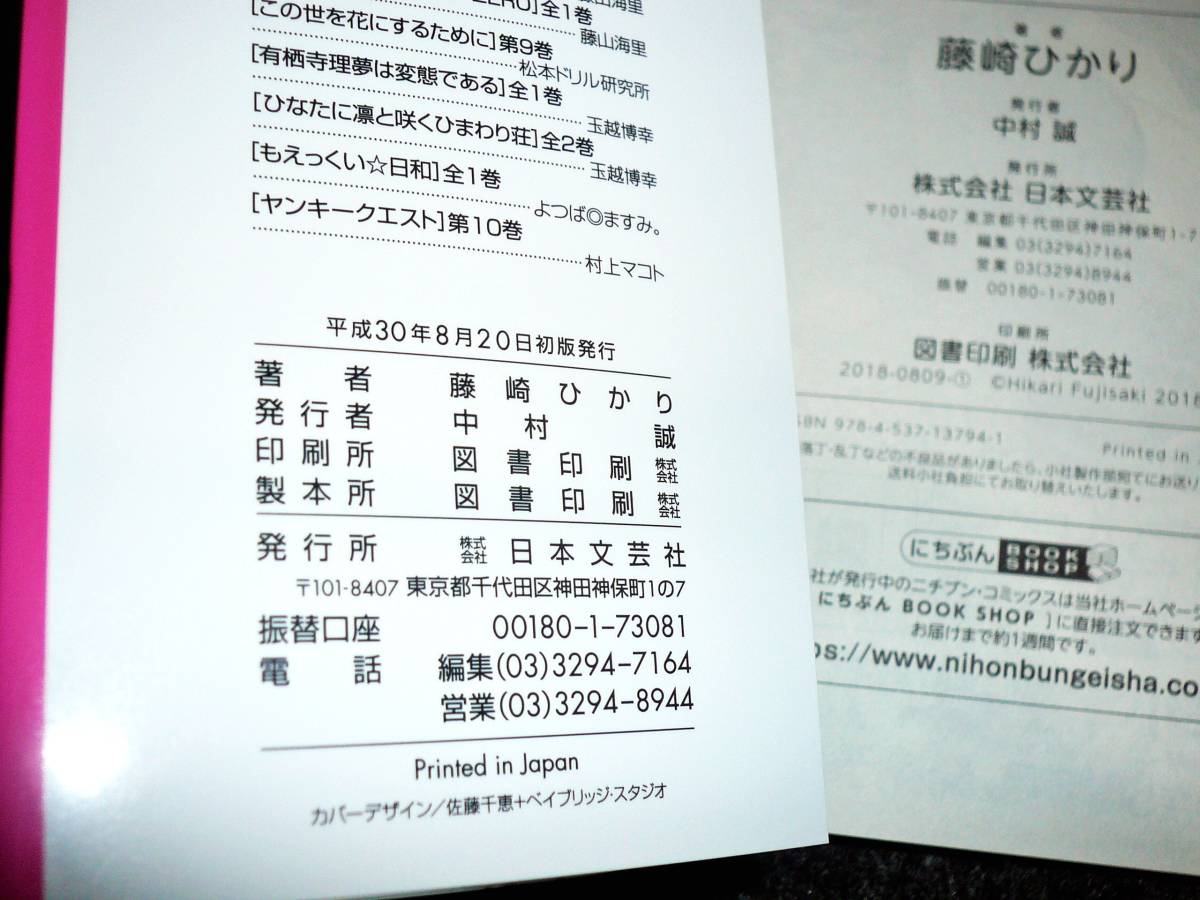 ERO]全1巻
藤山海里
[この世を花にするために]第9巻
藤山海里
[有栖寺理夢は変態である]全1巻
松本ドリル研究所
[ひなたに凛と咲くひまわり荘]全2巻
玉越博幸
[もえっくい☆日和]全1巻
玉越博幸
[ヤンキークエスト]第10巻
よつば◎ますみ。
村上マコト
平成30年8月20日初版発行
著者 藤崎ひかり
発行者 中村誠
印刷所 図書印刷株式会社
製本所 図書印刷株式会社
発行所 株式会社日本文芸社
〒101-8407 東京都千代田区神田神保町1の7
振替口座 00180-1-73081
電話 編集(03)3294-7164
営業(03)3294-8944
Printed in Japan
カバーデザイン/佐藤千恵+ベイブリッジ・スタジオ
著者
藤崎ひかり
発行者
中村 誠
発行所
株式会社 日本文芸社
〒101-8407 東京都千代田区神田神保町1-7
電話 編集 03(3294)7164
営業 03(3294)8944
振替 00180-1-73081
印刷所
図書印刷 株式会社
2018-0809-① ©Hikari Fujisaki 2018
ISBN 978-4-537-13794-1
Printed in
落丁・乱丁などの不良品がありましたら、小社製作部宛てにお送り
送料小社負担にてお取り替えいたします。
にちぶん BOOK SHOP
社が発行中のニチブン・コミックスは当社ホームページ
にちぶん BOOK SHOP ]に直接注文できます
お届けまで約1週間です。
ps://www.nihonbungeisha.co